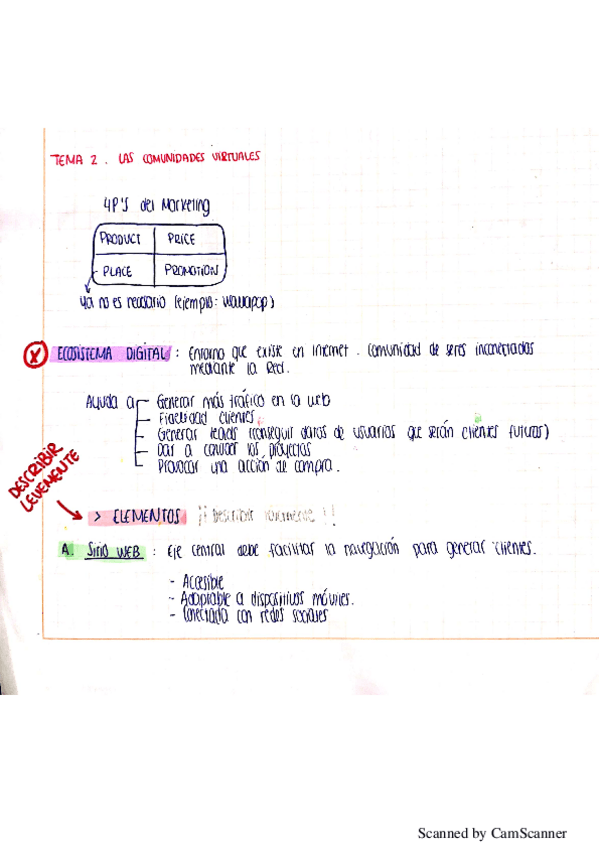 TEMA 2. LAS COMUNIDADES VIRTUALES
4P'S del Marketing
PRODUCT PRICE
PLACE PROMOTION
ya no es necesario (ejemplo: wallapop)
ECOSISTEMA DIGITAL: Entorno que existe en Internet. Comunidad de seres
mediante la Red.
Ayuda a Generar más tráfico en la web
Fidelidad clientes
Generar leads (conseguir datos de usuarios que serán clientes futuros)
Dar a conocer los proyectos
Provocar una acción de compra.
DESCRIBIR
LEVEMENTE
> ELEMENTOS ¡¡Describir levemente!!
A. Sitio WEB: Eje central debe facilitar la navegación para generar clientes.
- Accesible
- Adaptable a dispositivos móviles.
- Conectada con redes sociales
Scanned by CamScanner